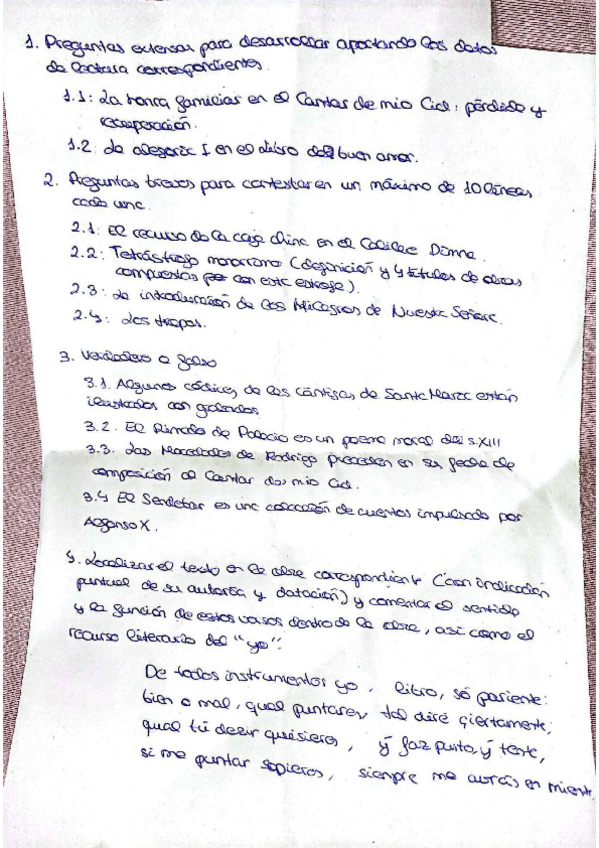 1. Preguntas extensas para desarrollar aportando los datos
de lectura correspondientes.
1.1: La honra familiar en el Cantar de mio Cid: pérdida y
recuperación.
1.2: La alegoría I en el Libro del buen amor.
2. Preguntas breves para contestar en un máximo de 10 líneas
cada una.
2.1: El recurso de la caja china en el Calila e Dimna.
2.2: Tetrástrofo monorrimo (definición y 4 títulos de obras
compuestas con esta estrofa).
2.3: La introducción de los Milagros de Nuestra Señora.
2.4: Los tropos.
3. Verdadero o falso
3.1. Algunos códices de las Cántigas de Santa María están
ilustrados con grabados
3.2. El Rimado de Palacio es un poema moral del s.XIII
3.3. Las Mocedades de Rodrigo preceden en su fecha de
composición al Cantar de mio Cid.
3.4 El Sendebar es una colección de cuentos impulsada por
Alfonso X.
4. Localizar el texto en la obra correspondiente (con indicación
puntual de su autoría y datación) y comentar el sentido
y la función de estos versos dentro de la obra, así como el
recurso literario del "yo":
De todos instrumentos yo, libro, só pariente:
bien o mal, qual puntares, tal diré çiertamente;
qual tú dezir quisieres, ý faz punto, ý tente,
si me puntar sopieres, siempre me avrás en miente.